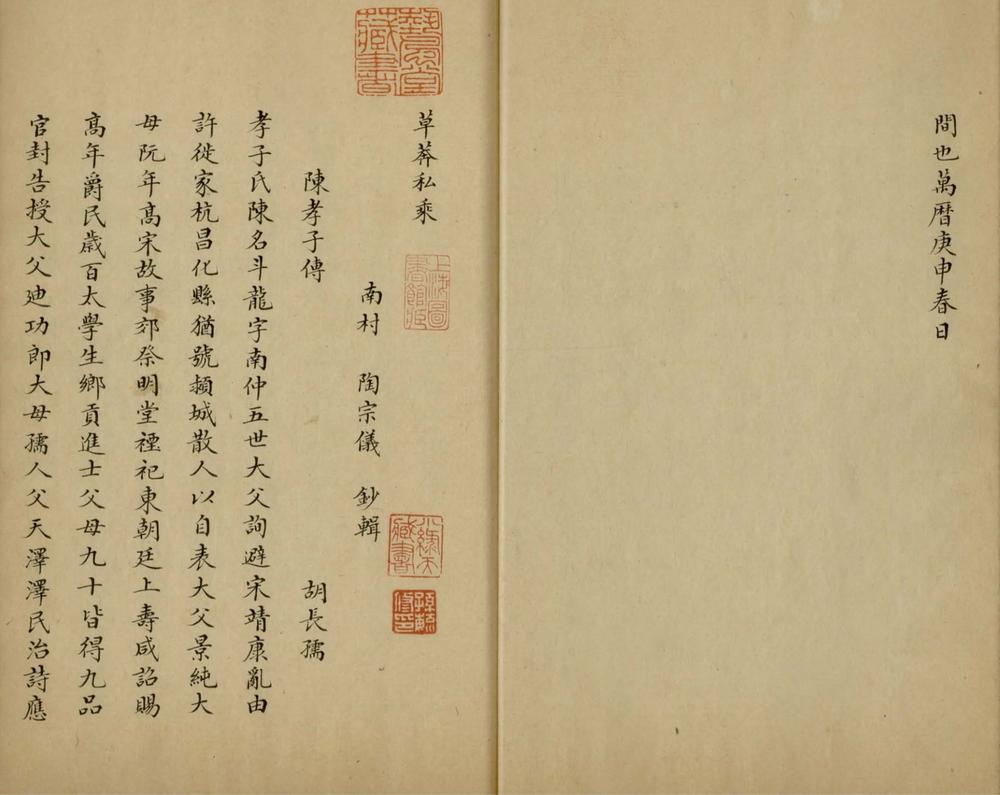 間也萬曆庚申春日
藝芸堂藏書
草莽私乘
上海圖書館藏
南村 陶宗儀 鈔輯
小綠天藏書
孫毓修印
陳孝子傳 胡長孺
孝子氏陳名斗龍字南仲五世大父詢避宋靖康亂由
許徙家杭昌化縣猶號潁城散人以自表大父景純大
母阮年高宋故事郊祭明堂禋祀東朝廷上壽咸詔賜
高年爵民歲百太學生鄉貢進士父母九十皆得九品
官封告授大父廸功郎大母孺人父天澤澤民治詩應